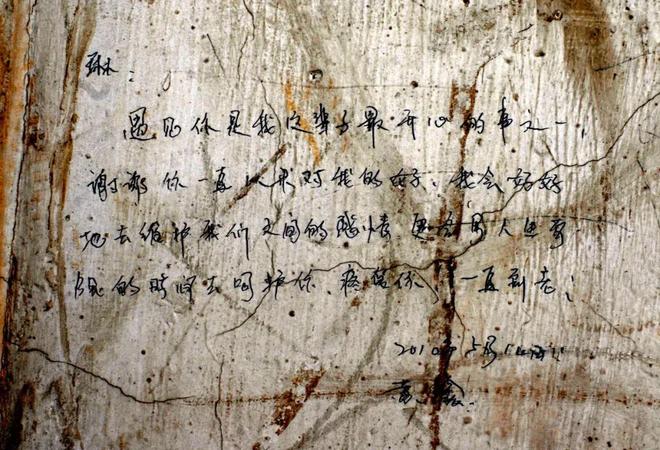 琳：
遇见你是我这辈子最开心的事之一，
谢谢你一直以来对我的好、我会好好
地去维护我们之间的感情、更会用
的时间去呵护你、疼惜你、一直到老；
2010年5月
黄鑫